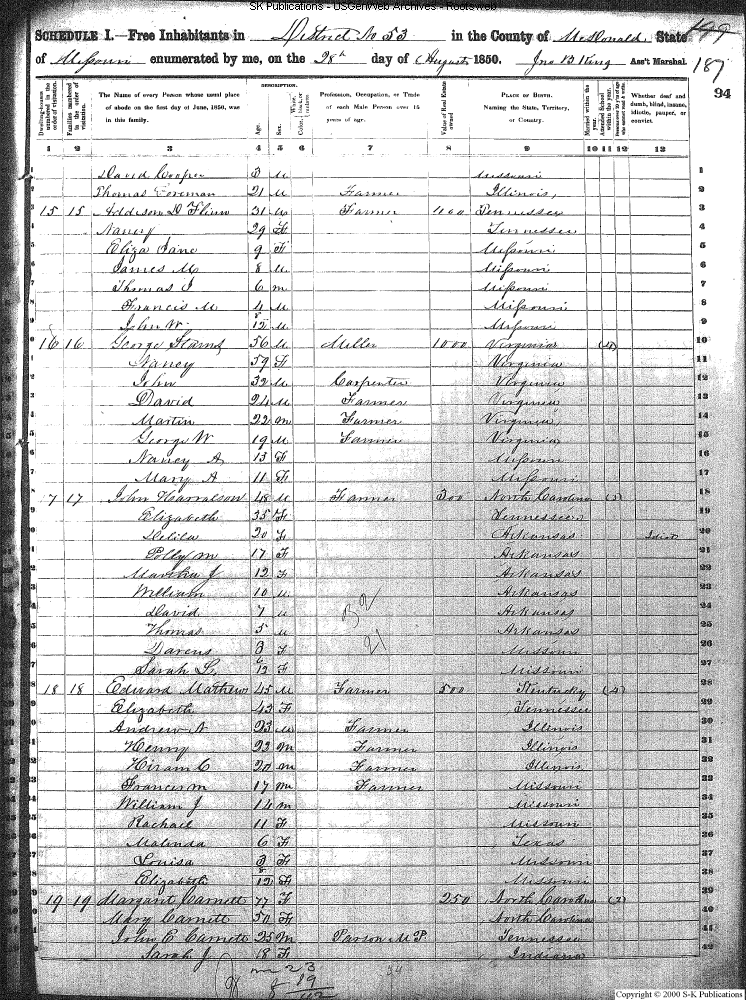 SK Publications - USGenWeb Archives - Rootsweb
SCHEDULE I.—Free Inhabitants in District No 53 in the County of McDonald State
of Missouri enumerated by me, on the 28th day of August 1850. Jno B King Ass't Marshal.
187
94
Dwelling-houses numbered in the order of visitation.
Families numbered in the order of visitation.
The Name of every Person whose usual place of abode on the first day of June, 1850, was in this family.
DESCRIPTION.
Age.
Sex.
Color
Profession, Occupation, or Trade of each Male Person over 15 years of age.
Value of Real Estate owned
PLACE OF BIRTH. Naming the State, Territory, or Country.
Married within the year.
Attended School within the year.
Whether deaf and dumb, blind, insane, idiotic, pauper, or convict.
1 2 3 4 5 6 7 8 9 10 11 12 13
David Cooper 3 M Missouri 1
Thomas Foreman 21 M Farmer Illinois 2
15 15 Addison D Flinn 31 M Farmer 1000 Tennessee 3
Nancy 29 F Tennessee 4
Eliza Jane 9 F Missouri 5
James M 8 M Missouri 6
Thomas J 6 M Missouri 7
Francis M 4 M Missouri 8
John W. 8/12 M Missouri 9
16 16 George Starns 56 M Miller 1000 Virginia 10
Nancy 59 F Virginia 11
John 32 M Carpenter Virginia 12
David 24 M Farmer Virginia 13
Martin 22 M Farmer Virginia 14
George W 19 M Farmer Virginia 15
Nancy A 13 F Missouri 16
Mary A 11 F Missouri 17
17 17 John Harralson 48 M Farmer 300 North Carolina 18
Elizabeth 35 F Tennessee 19
Delila 20 F Arkansas Idiot 20
Polly M 17 F Arkansas 21
Martha J 12 F Arkansas 22
William 10 M Arkansas 23
David 7 M Arkansas 24
Thomas 5 M Arkansas 25
Darcus 3 F Missouri 26
Sarah L. 6/12 F Missouri 27
18 18 Edward Mathews 45 M Farmer 500 Kentucky 28
Elizabeth 43 F Tennessee 29
Andrew N 23 M Farmer Illinois 30
Henry 22 M Farmer Illinois 31
Hiram C 20 M Farmer Illinois 32
Francis M 17 M Farmer Missouri 33
William J 14 M Missouri 34
Rachael 11 F Missouri 35
Malinda 6 F Texas 36
Louisa 3 F Missouri 37
Elizabeth 8/12 F Missouri 38
19 19 Margaret Carnett 77 F 250 North Carolina 39
Mary Carnett 50 F North Carolina 40
John E Carnett 25 M Parson M P. Tennessee 41
Sarah J 18 F Indiana 42
m 23
19
42
Copyright © 2000 S-K Publications